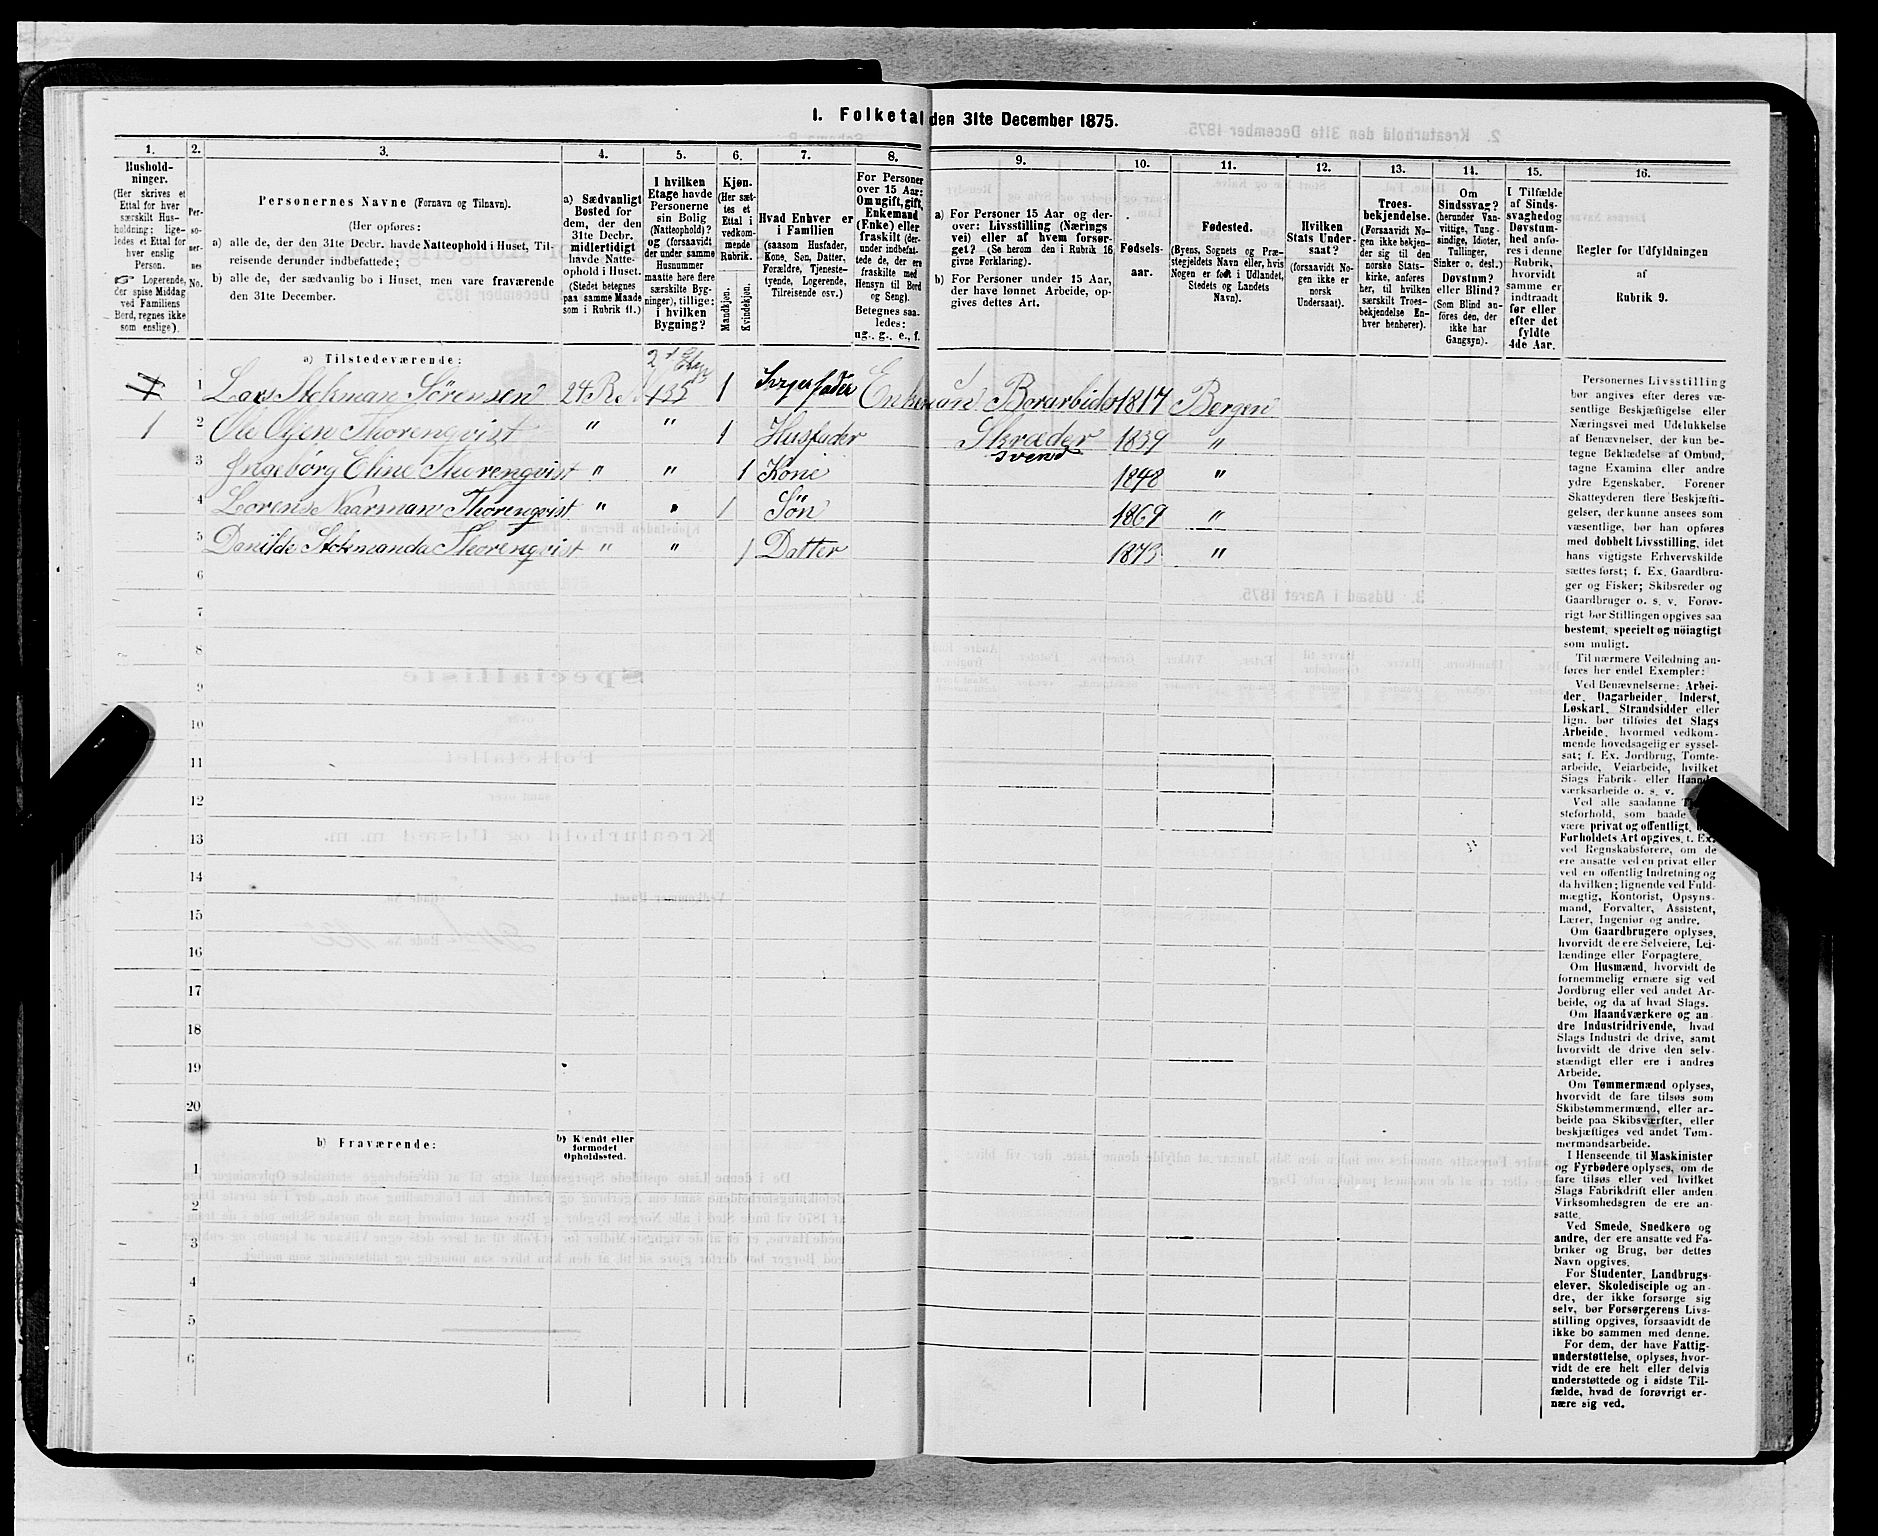 1. Folketal den 31te December 1875.
1. 2. 3. 4. 5. 6. 7. 8. 9. 10. 11. 12. 13. 14. 15. 16.
Hushold-
ninger.
(Her skrives et
Ettal for hver
særskilt Hus-
holdning; lige-
ledes et Ettal for
hver enslig
Person.
Logerende,
der spise Middag
ved Familiens
Bord, regnes ikke
som enslige).
Per-
so-
ner-
nes
No.
Personernes Navne (Fornavn og Tilnavn).
(Her opføres:
a) alle de, der den 31te Decbr. havde Natteophold i Huset, Til-
reisende derunder indbefattede;
b) alle de, der sædvanlig bo i Huset, men vare fraværende
den 31te December.
a) Sædvanligt
Bosted for
dem, der den
31te Decbr.
midlertidigt
havde Natte-
ophold i Huset.
(Stedet betegnes
paa samme Maade
som i Rubrik 11.)
I hvilken
Etage havde
Personerne
sin Bolig
(Natteophold)?
og (forsaavidt
der under samme
Husnummer
maatte høre flere
særskilte Byg-
ninger), tillige:
i hvilken
Bygning?
Kjøn.
(Her sæt-
tes et
Ettal i
vedkom-
mende
Rubrik.
Mandkjøn.
Kvindekjøn.
Hvad Enhver er
i Familien
(saasom Husfader,
Kone, Søn, Datter,
Forældre, Tjeneste-
tyende, Logerende,
Tilreisende osv.)
For Personer
over 15 Aar:
Om ugift, gift,
Enkemand
(Enke) eller
fraskilt (der-
under indbefat-
tede de, der ere
fraskilte med
Hensyn til Bord
og Seng).
Betegnes saa-
ledes:
ug., g., e., f.
a) For Personer 15 Aar og der-
over: Livsstilling (Nærings
vei) eller af hvem forsør-
get? (Se herom den i Rubrik 16
givne Forklaring).
b) For Personer under 15 Aar,
der have lønnet Arbeide, op-
gives dettes Art.
Fødsels-
aar.
Fødested.
(Byens, Sognets og Præ-
stegjeldets Navn eller, hvis
Nogen er født i Udlandet,
Stedets og Landets
Navn).
Hvilken
Stats Under-
saat?
(forsaavidt No-
gen ikke er
norsk
Undersaat).
Troes-
bekjendelse.
(Forsaavidt No-
gen ikke bekjen-
der sig til den
norske Stats-
kirke, anføres
her, til hvilken
særskilt Troes-
bekjendelse En-
hver henhører).
Om
Sindssvag?
(herunder Van-
vittige, Tung-
sindige, Idioter,
Tullinger,
Sinker o. desl.)
Døvstum?
eller Blind?
(Som Blind an-
føres den, der
ikke har
Gangsyn).
I Tilfælde
af Sinds-
svaghed og
Døvstum-
hed anfø-
res i denne
Rubrik,
hvorvidt
samme er
indtraadt
før eller
efter det
fyldte
4de Aar.
Regler for Udfyldningen
af
Rubrik 9.
a) Tilstedeværende:
1 Lars Stokman Sørensen 24 R. 1 Enkemand 1817 Bergen
1 2 Ole Olsen Thorenqvist " " 1 Husfader Skræder 1839 "
svend
3 Ingebörg Eline Thorenqvist " " 1 Kone 1848 "
4 Lorens Naarman Thorenqvist " " 1 Søn 1869 "
5 Danilde Stokmanda Thorenqvist " " 1 Datter 1873 "
6
7
8
9
10
11
12
13
14
15
16
17
18
19
20
b) Fraværende:
b) Kjendt eller
formodet
Opholdssted.
1
2
3
4
5
6
Personernes Livsstilling
bør angives efter deres væ-
sentlige Beskjæftigelse eller
Næringsvei med Udelukkelse
af Benævnelser, der kun be-
tegne Beklædelse af Ombud,
tagne Examina eller andre
ydre Egenskaber. Forener
Skatteyderen flere Beskjæfti-
gelser, der kunne ansees som
væsentlige, bør han opføres
med dobbelt Livsstilling, idet
hans vigtigste Erhvervskilde
sættes først; f. Ex. Gaardbru-
ger og Fisker; Skibsreder og
Gaardbruger o. s. v. Forøv-
rigt bør Stillingen opgives saa
bestemt, specielt og nöiagtigt
som muligt.
Til nærmere Veiledning an-
føres her endel Exempler:
Ved Benævnelserne: Arbei-
der, Dagarbeider, Inderst,
Løskarl, Strandsidder eller
lign. bør tilføies det Slags
Arbeide, hvormed vedkom-
mende hovedsagelig er syssel-
sat; f. Ex. Jordbrug, Tomte-
arbeide, Veiarbeide, hvilket
Slags Fabrik- eller Haand-
værksarbeide o. s. v.
Ved alle saadanne
steforhold, som baade
være privat og offentligt,
Forholdets Art opgives, f. Ex.
ved Regnskabsførere, om de
ere ansatte ved en privat eller
ved en offentlig Indretning og
da hvilken; lignende ved Fuld-
mægtig, Kontorist, Opsyns-
mand, Forvalter, Assistent,
Lærer, Ingeniør og andre.
Om Gaardbrugere oplyses,
hvorvidt de ere Selveiere, Lei-
lændinge eller Forpagtere.
Om Husmænd, hvorvidt de
fornemmelig ernære sig ved
Jordbrug eller ved andet Ar-
beide, og da af hvad Slags.
Om Haandværkere og an-
dre Industridrivende, hvad
Slags Industri de drive, samt
hvorvidt de drive den selv-
stændigt eller ere i andres
Arbeide.
Om Tømmermænd oplyses,
hvorvidt de fare tilsøs som
Skibstømmermænd, eller ar-
beide paa Skibsværfter, eller
beskjæftiges ved andet Tøm-
mermandsarbeide.
I Henseende til Maskinister
og Fyrbødere oplyses, om de
fare tilsøs eller ved hvilket
Slags Fabrikdrift eller anden
Virksomhedsgren de ere an-
satte.
Ved Smede, Snedkere og
andre, der ere ansatte ved Fa-
briker og Brug, bør dettes
Navn opgives.
For Studenter, Landbrugs-
elever, Skoledisciple og an-
dre, der ikke forsørge sig
selv, bør Forsørgerens Livs-
stilling opgives, forsaavidt de
ikke bo sammen med denne.
For dem, der have Fattig-
understøttelse, oplyses, hvor-
vidt de ere helt eller delvis
understøttede og i sidste Til-
fælde, hvad de forøvrigt er-
nære sig ved.